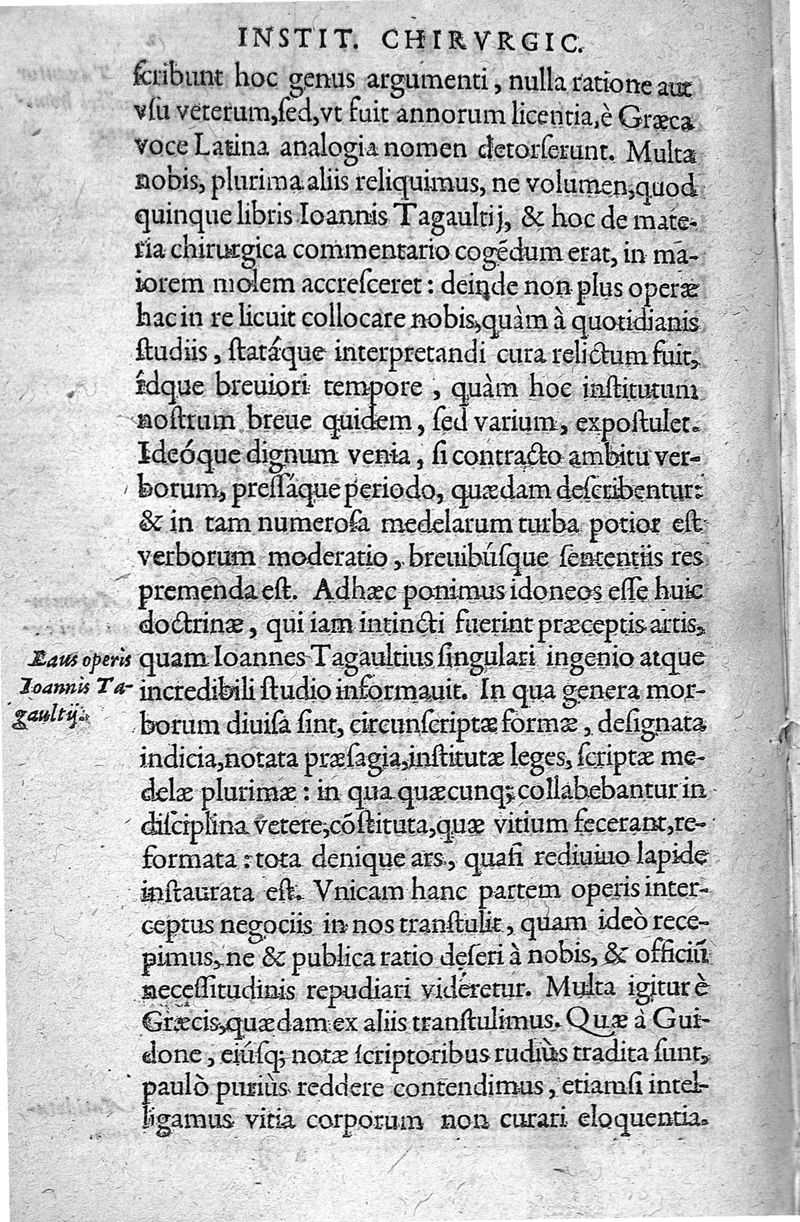 INSTIT. CHIRVRGIC.
ſcribunt hoc genus argumenti, nulla ratione aut
vſu veterum, ſed, vt fuit annorum licentia, è Græca
voce Latina analogia nomen detorſerunt. Multa
nobis, plurima aliis reliquimus, ne volumen, quod
quinque libris Ioannis Tagaultij, & hoc de mate-
ria chirurgica commentario cogẽdum erat, in ma-
iorem molem accreſceret: deinde non plus operæ
hac in re licuit collocare nobis, quàm à quotidianis
ſtudiis, ſtatáque interpretandi cura relictum fuit,
îdque breuiori tempore, quàm hoc inſtitutum
noſtrum breue quidem, ſed varium, expoſtulet.
Ideóque dignum venia, ſi contracto ambitu ver-
borum, preſſáque periodo, quædam deſcribentur:
& in tam numeroſa medelarum turba potior eſt
verborum moderatio, breuibúſque ſententiis res
premenda eſt. Adhæc ponimus idoneos eſſe huic
doctrinæ, qui iam intincti fuerint præceptis artis,
Laus operis
Ioannis Ta-
gaultij.
quam Ioannes Tagaultius ſingulari ingenio atque
incredibili ſtudio informauit. In qua genera mor-
borum diuiſa ſint, circunſcriptæ formæ, deſignata
indicia, notata præſagia, inſtitutæ leges, ſcriptæ me-
delæ plurimæ: in qua quæcunq; collabebantur in
diſciplina vetere, cõſtituta, quæ vitium fecerant, re-
formata: tota denique ars, quaſi rediuiuo lapide
inſtaurata eſt. Vnicam hanc partem operis inter-
ceptus negociis in nos tranſtulit, quam ideò rece-
pimus, ne & publica ratio deſeri à nobis, & officiũ
neceſſitudinis repudiari vidéretur. Multa igitur è
Græcis, quædam ex aliis tranſtulimus. Quæ à Gui-
done, eiúſq; notæ ſcriptoribus rudiùs tradita ſunt,
paulò puriùs reddere contendimus, etiamſi intel-
ligamus vitia corporum non curari eloquentia.